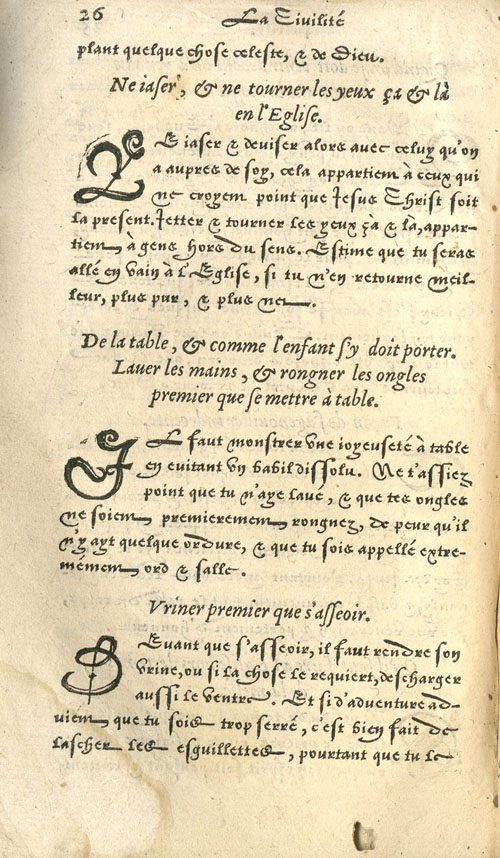 26 La Civilité
plant quelque chose celeste, & de Dieu.
Ne iaser, & ne tourner les yeux ça & là
en l'Eglise.
LE iaser & deviser alors avec celuy qu'on
a aupres de soy, cela appartient à ceux qui
ne croyent point que Jesus Christ soit
la present. Jetter & tourner les yeux çà & là, appar-
tient à gens hors du sens. Estime que tu seras
allé en vain à l'Eglise, si tu n'en retourne meil-
leur, plus pur, & plus net.
De la table, & comme l'enfant s'y doit porter.
Lauer les mains, & rongner les ongles
premier que se mettre à table.
IL faut monstrer vne ioyeuseté à table
en euitant vn babil dissolu. Ne t'assiez
point que tu n'aye laué, & que tes ongles
ne soient premierement rongnez, de peur qu'il
n'y ayt quelque ordure, & que tu sois appellé extre-
mement ord & salle.
Vriner premier que s'asseoir.
DEuant que s'asseoir, il faut rendre son
vrine, ou si la chose le requiert, descharger
aussi le ventre. Et si d'aduenture ad-
vient que tu sois trop serré, c'est bien fait de
lascher les esguillettes, pourtant que tu le